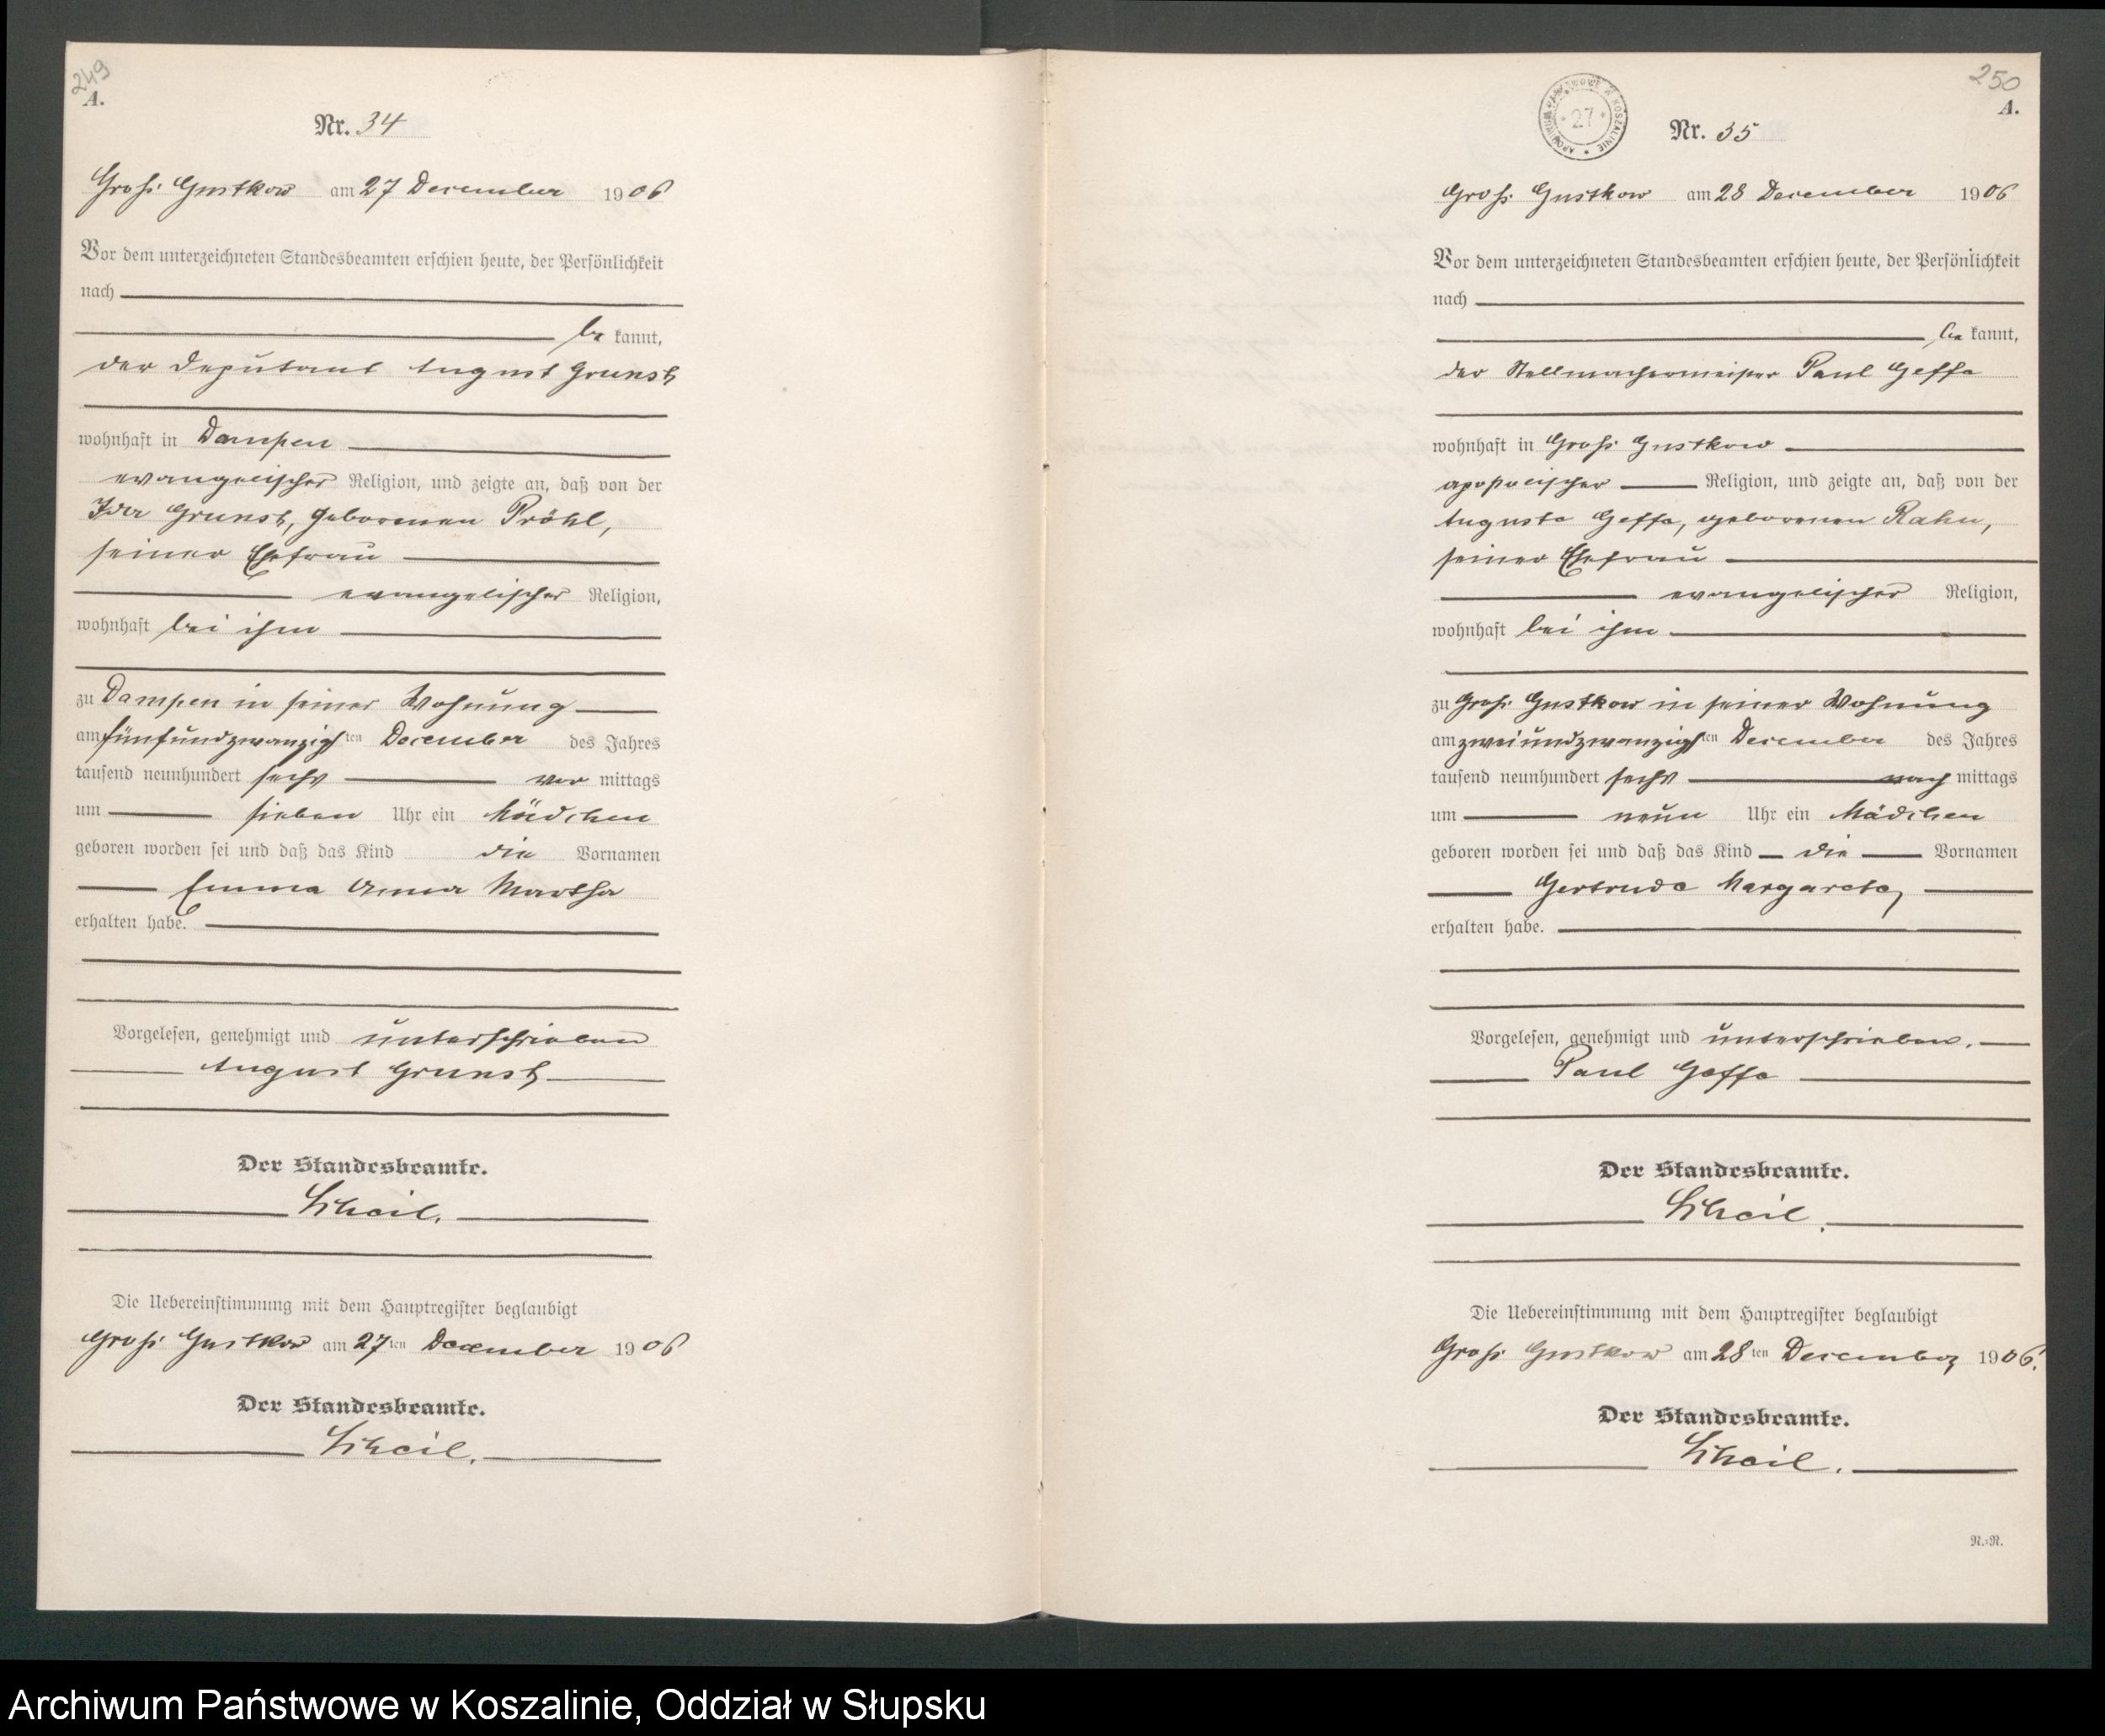 249
A.
Nr. 34
Groß Gustkow am 27 December 1906
Vor dem unterzeichneten Standesbeamten erschien heute, der Persönlichkeit
nach
be kannt,
der Deputant August Grunst
wohnhaft in Dampen
evangelischer Religion, und zeigte an, daß von der
Ida Grunst, geborenen Pröhl,
seiner Ehefrau
evangelischer Religion,
wohnhaft bei ihm
zu Dampen in seiner Wohnung
am fünfundzwanzigsten December des Jahres
tausend neunhundert sechs vor mittags
um sieben Uhr ein Mädchen
geboren worden sei und daß das Kind die Vornamen
Emma Anna Martha
erhalten habe.
Vorgelesen, genehmigt und unterschrieben
August Grunst
Der Standesbeamte.
Die Uebereinstimmung mit dem Hauptregister beglaubigt
Groß Gustkow am 27ten December 1906
Der Standesbeamte.
250
A.
ARCHIWUM PAŃSTWOWE W KOSZALINIE * 27 *
Nr. 35
Groß Gustkow am 28 December 1906
Vor dem unterzeichneten Standesbeamten erschien heute, der Persönlichkeit
nach
be kannt,
der Stellmachermeister Paul Geffe
wohnhaft in Groß Gustkow
apostolischer Religion, und zeigte an, daß von der
Auguste Geffe, geborenen Rahn,
seiner Ehefrau
evangelischer Religion,
wohnhaft bei ihm
zu Groß Gustkow in seiner Wohnung
am zweiundzwanzigsten December des Jahres
tausend neunhundert sechs nach mittags
um neun Uhr ein Mädchen
geboren worden sei und daß das Kind die Vornamen
Gertrude Margarete,
erhalten habe.
Vorgelesen, genehmigt und unterschrieben.
Paul Geffe
Der Standesbeamte.
Die Uebereinstimmung mit dem Hauptregister beglaubigt
Groß Gustkow am 28ten December 1906.
Der Standesbeamte.
N.=N.
Archiwum Państwowe w Koszalinie, Oddział w Słupsku